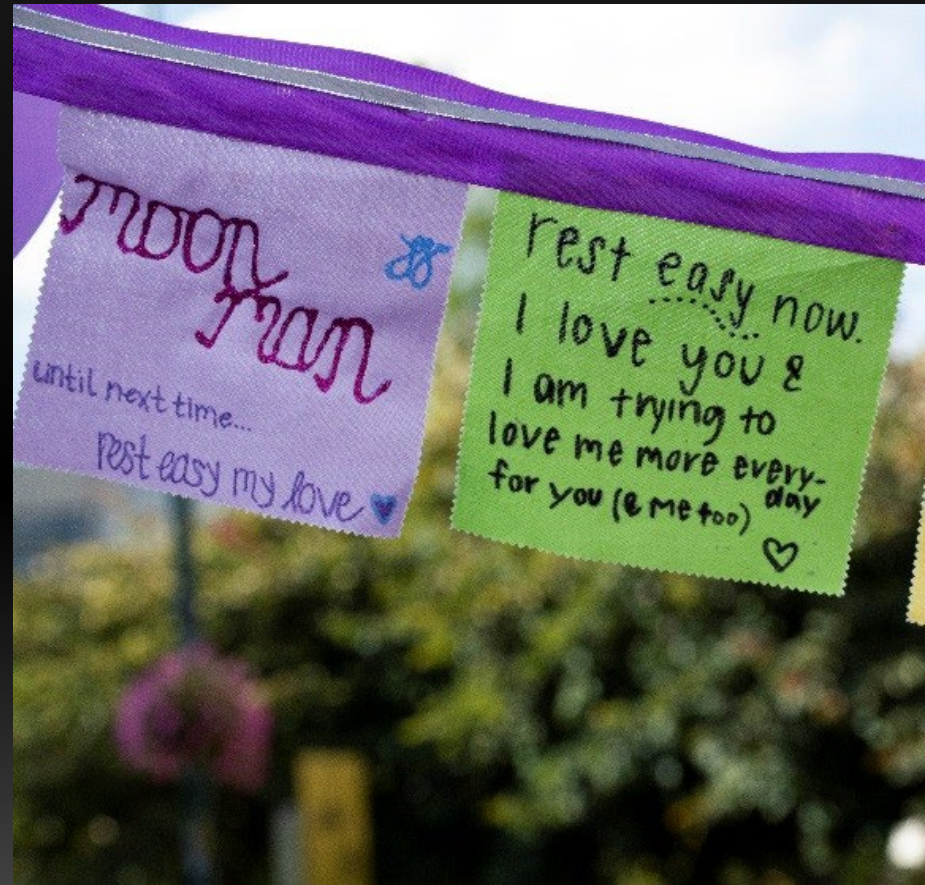 moon
man
until next time...
rest easy my love
rest easy now.
I love you &
I am trying to
love me more every-
day
for you (& me too)